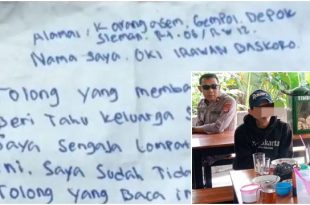 Alamat : Karangasem, Gempol, DEPOK
Sleman Rt. 06 / RW 12.
Nama Saya. OKI IRAWAN BASKORO.
Tolong Yang memba
Beri Tahu Keluarga
Saya Sengaja Lompat
ini. Saya Sudah Tida
Tolong Yang Baca i